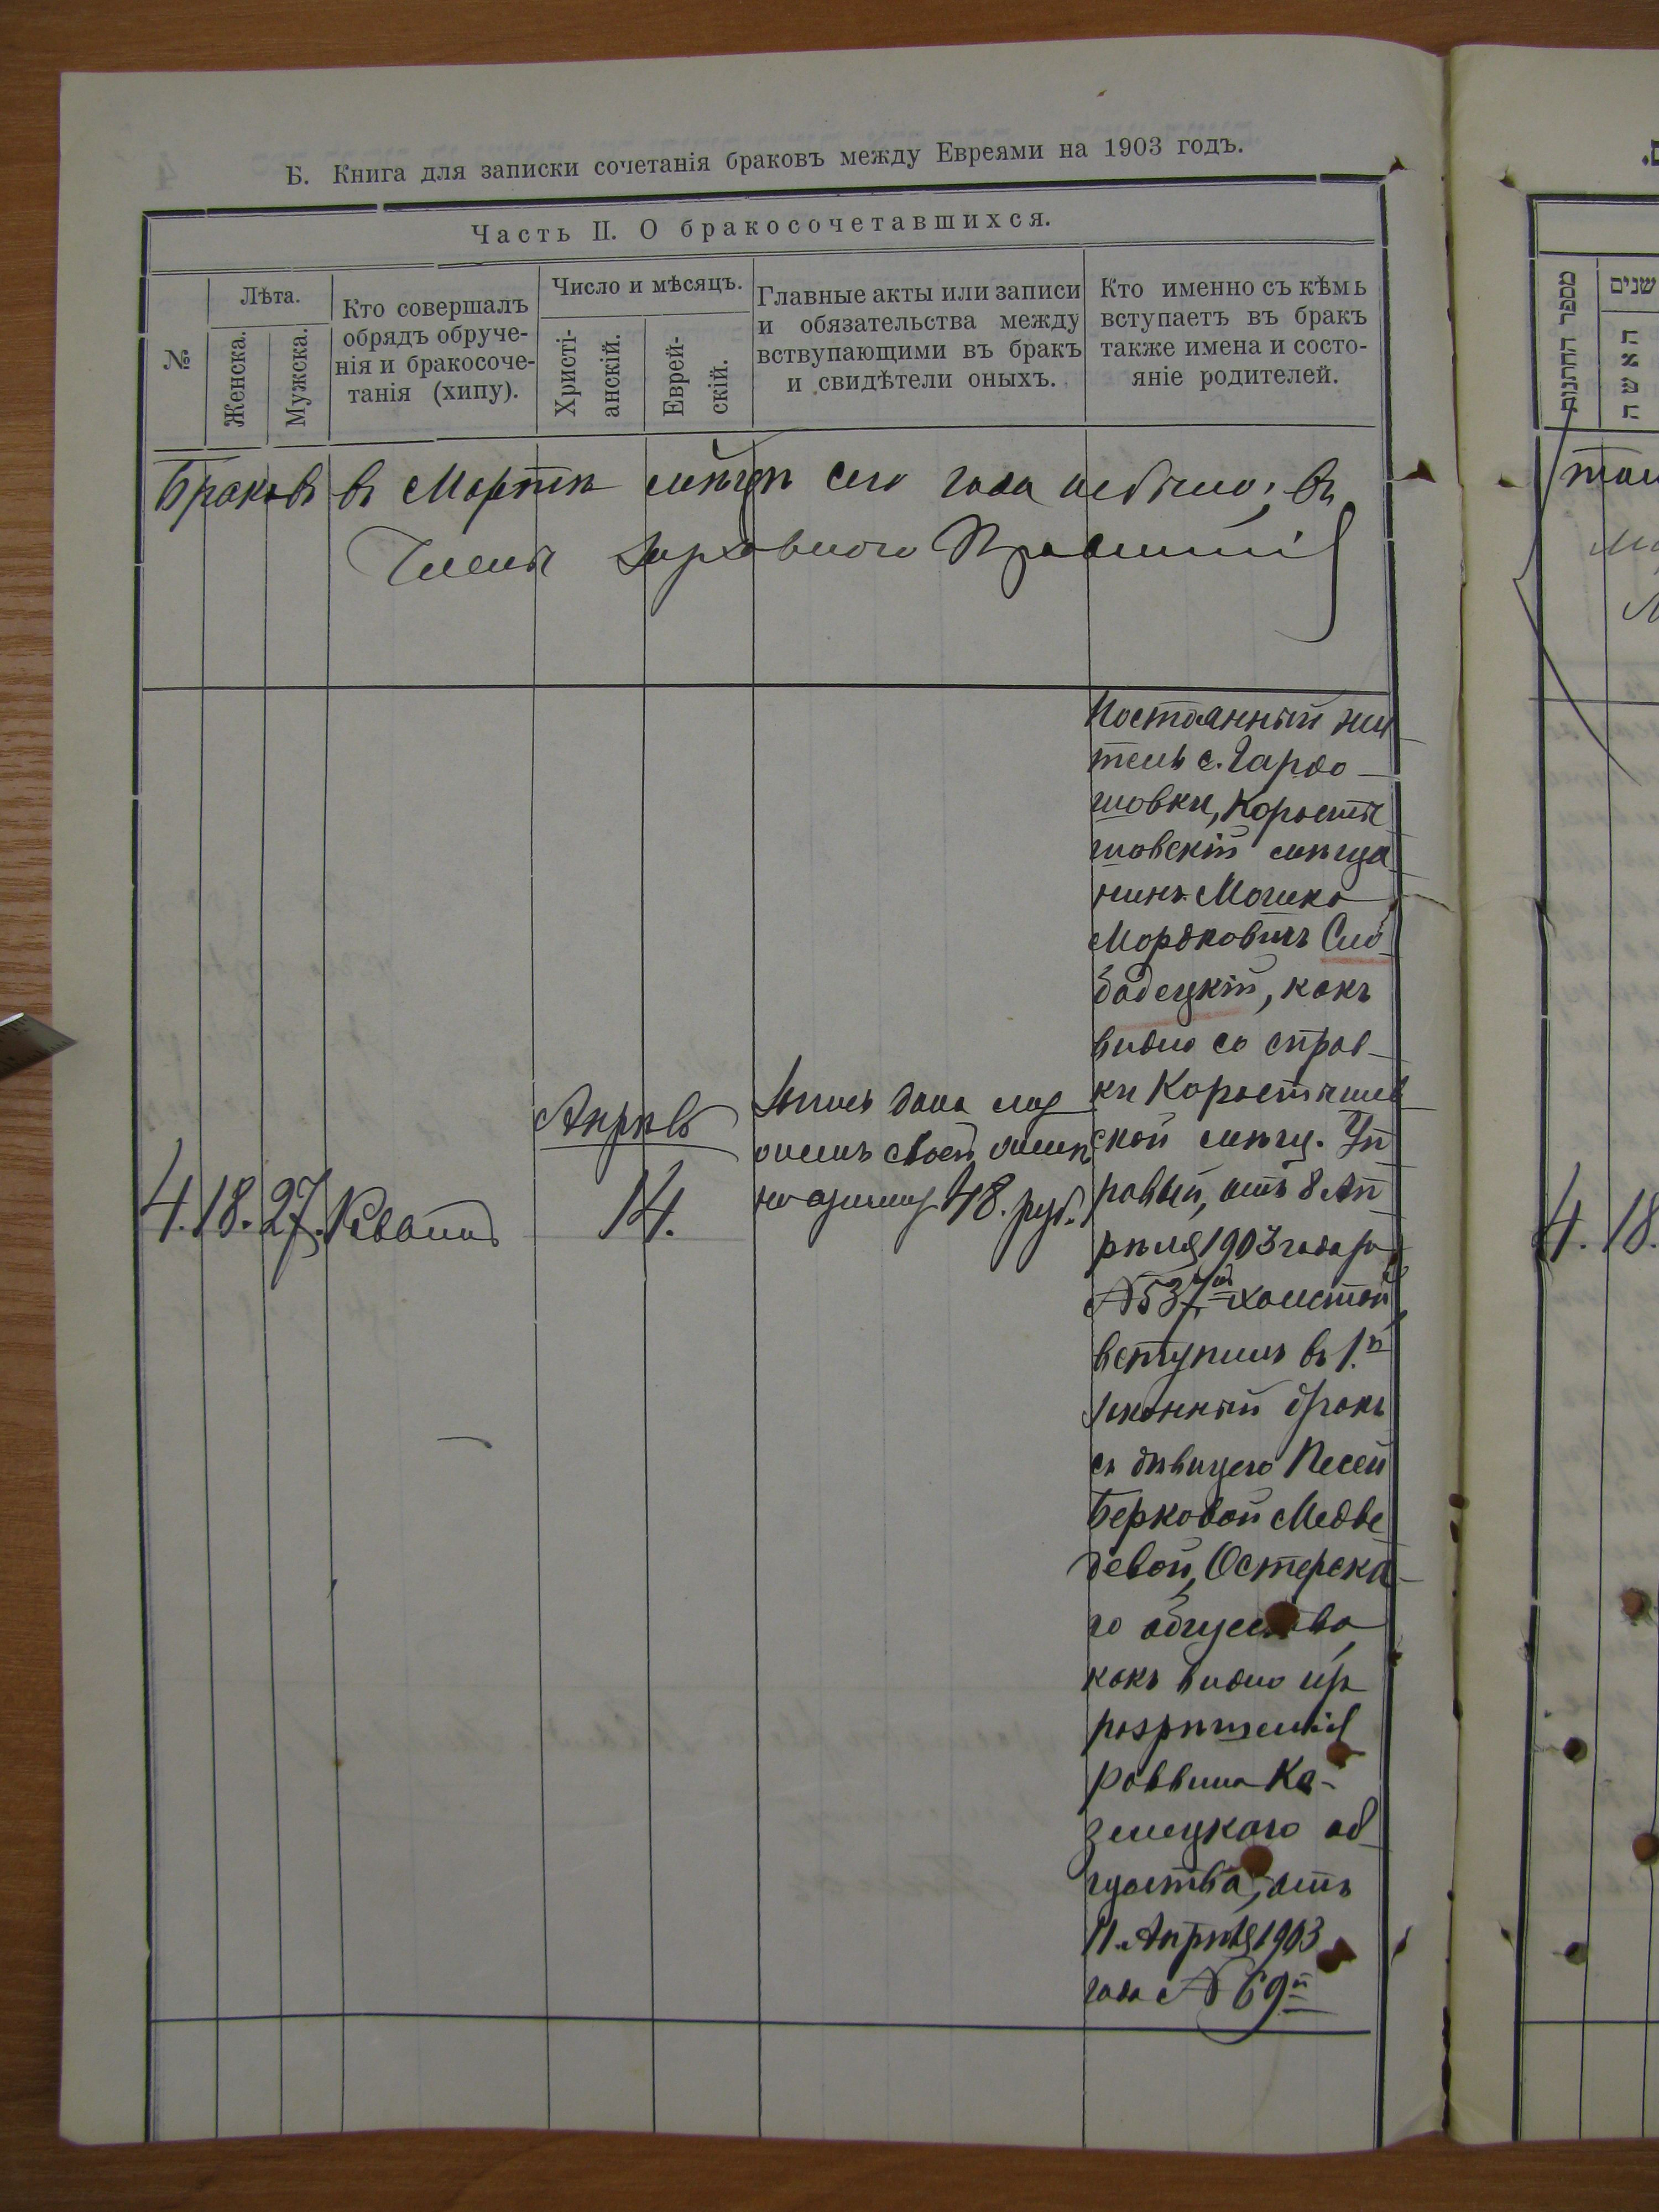 Б. Книга для записки сочетанія браковъ между Евреями на 1903 годъ.
Часть II. О бракосочетавшихся.
№
Лѣта.
Женска.
Мужска.
Кто совершалъ
обрядъ обруче-
нія и бракосоче-
танія (хипу).
Число и мѣсяцъ.
Христі-
анскій.
Еврей-
скій.
Главные акты или записи
и обязательства между
вствупающими въ бракъ
и свидѣтели оныхъ.
Кто именно съ кѣмъ
вступаетъ въ бракъ
также имена и состо-
яніе родителей.
Браковъ въ Мартѣ мѣсяцѣ сего года небыло; въ
Члены Духовного Правленія
4. 18. 27. Апрѣль
14.
Запись дана
своей женѣ
на сумму 48. руб.
Постоянный жи
тель с. Гардо
шовки, Коросты
шовскій мѣща
нинъ Мошко
Мордковичъ Сло
бодецкій, какъ
видно со справ-
ки Коростышев
ской мѣщ. Уп
равы, отъ 8 Ап
рѣля 1903 года за
№ 537 холостой
вступилъ въ 1.й
законный бракъ
съ дѣвицею Песей
Берковой Медве
девой, Остерска
го общества
какъ видно изъ
разрѣшенія
раввина Ко-
зелецкаго об
щества, отъ
11. Апрѣля 1903
года № 69й
מספר החתנות
שנים
האשה
4. 18.